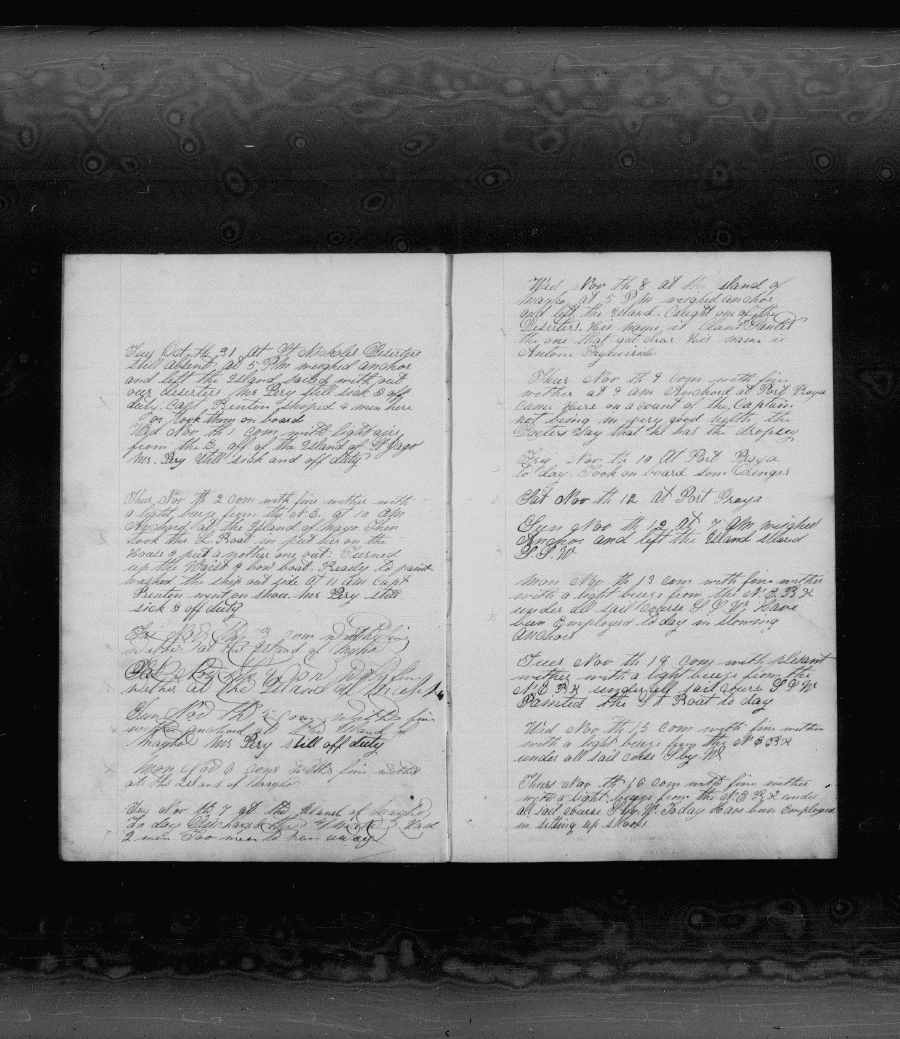 Tuy Oct th 31 at St Nicholas Deserters
still absent at 5 PM weighed anchor
and left the Island sailed with out
our deserters Mr. Pery still sick & off
duty. Capt Benton shiped 4 men here
or took them on board
Wed Nov th 1 Com with light airs
from the E. off of the Island of St Jago
Mr. Pery still sick and off duty
Thus Nov th 2 Com with fine wether with
a light breze from the N.E. at 10 AM
Anchord at the Island of Mayo then
took the L Boat in put her on the
house & put a nother one out. Turned
up the Waist & bow boat. Ready to paint
washed the ship out side at 11 AM Capt
Benton went on shore. Mr Pery still
sick & off duty
Fri Nov th 3 Com with fine
wether at the Island of Mayho
Sat Nov th 4 Com with fine
wether at the Island of Mayho
Sun Nov th 5 Com with fine
wether anchord at the Island of
Mayho Mr Pery still off duty
Mon Nov 6 Com with fine wether
at the Island of Mayho
Tuy Nov th 7 at the Island of Mayho
To day Discharged the Mate & had
2 men Too men to run away
Wed Nov th 8 at the island of
Mayho at 5 PM weighed anchor
and left the Island. Caught one of the
Deserters. His name is
the one that got clear His name is
Antone
Thus Nov th 9 Com with fine
wether at 9 AM Anchord at Port Praya
Came here on a count of the Captain
not being in very good helth the
Docters say that he has the dropsey
Fri Nov th 10 At Port Praya
to day. Took on board som Orenges
Sat Nov th 12 at Port Praya
Sun Nov th 12 at 7 AM weighed
Anchor and left the Island steard
S.S.W
Mon Nov th 13 Com with fine wether
with a light breze from the N.E.B.E
under all sail Course S S W. Have
ben Employed to day in stowing
Anchors
Tues Nov th 14 Com with plesent
wether with a light breze from the
N.E.B.E under all sail course S S W
Painted the St Boat to day
Wed Nov th 15 Com with fine wether
with a light breze from the N E B E
under all sail corse S by W
Thurs Nov th 16 Com with fine wether
with a light breze from the N.E.B.E under
all sail course S by W. To day Have ben Employed
in setting up shooks